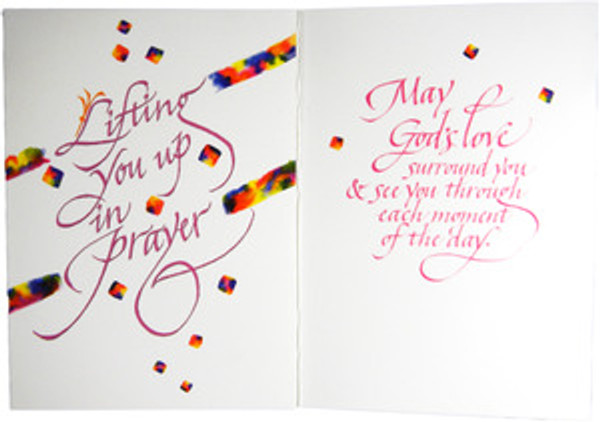 Lifting
you up
in
prayer
May
God's love
surround you
& see you through
each moment
of the day.